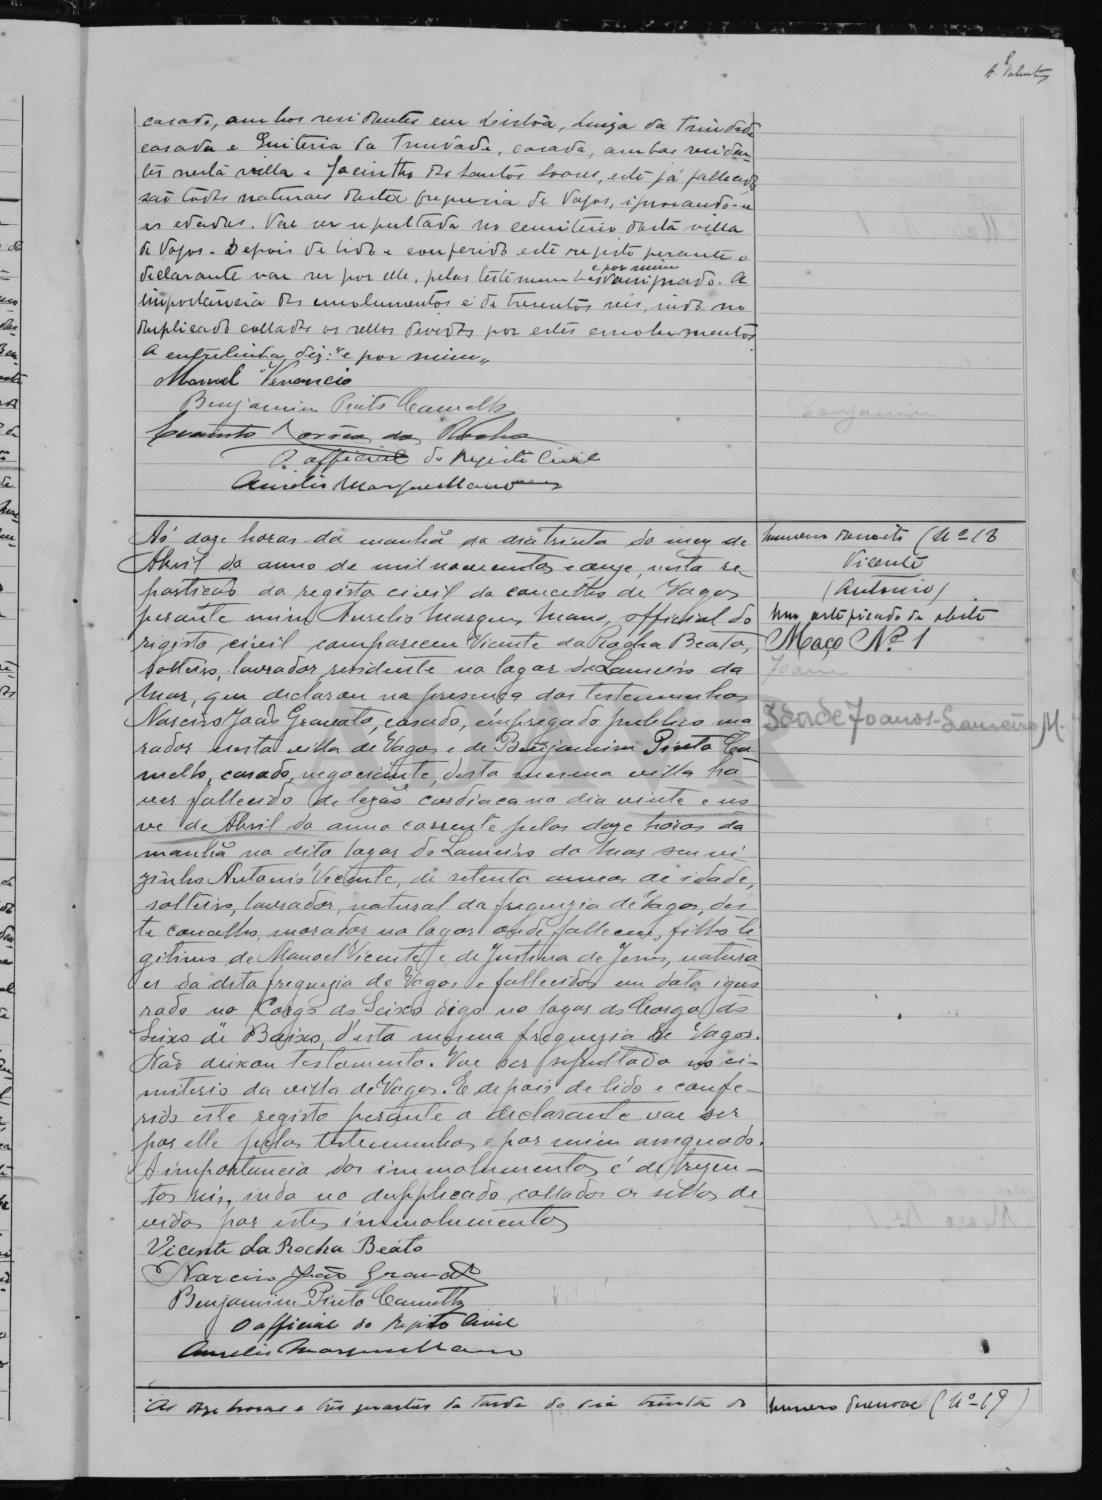 8
casado, ambos residentes em Lisbôa, Luiza da Trindade
casada e Quiteria da Trindade, casada, ambas residen-
tes nesta villa e Jacintho dos Santos Soares, este já fallecido
são todos naturaes desta freguezia de Vagos, ignorando-se
as edades. Vae ser sepultada no cemiterio desta villa
de Vagos. Depois de lido e conferido este registo perante o
declarante vae ser por elle, pelas testemunhas e por mim assignado. A
importancia dos emolumentos é de tresentos reis, indo no
duplicado collados os sellos devidos por estes emolumentos.
A entrelinha diz: "e por mim"
Manuel Venancio
Benjamim Pinto Camello
Corrêa da Rocha
O official do Registo Civil
Aurelio Marques Mano
Ás doze horas da manhã do dia trinta do mez de
Abril do anno de mil novecentos e onze, nesta re
partição do registo civil do concelho de Vagos
perante mim, Aurelio Marques Mano, official do
registo civil compareceu Vicente da Rocha Beato,
solteiro, lavrador, residente no logar do Lameiro do
Mar, que declarou na presença das testemunhas
Narciso João Gravato, casado, empregado publico mo
rador nesta villa de Vagos e de Benjamim Pinto Ca
mello, casado, negociante, desta mesma villa ha-
ver fallecido de lezão cardiaca no dia vinte e no
ve de Abril do anno corrente pelas doze horas da
manhã no dito logar do Lameiro do Mar seu vi-
zinho Antonio Vicente, de setenta annos de idade,
solteiro, lavrador, natural da freguezia de Vagos, des
te concelho, morador no logar onde falleceu, filho le
gitimo de Manoel Vicente e de Justina de Jesus, natura-
es da dita freguezia de Vagos e fallecidos em data igno
rada no Corgo do Seixo digo no logar do Corgo do
Seixo de Baixo, d'esta mesma freguezia de Vagos.
Não deixou testamento. Vae ser sepultado no ce-
miterio da villa de Vagos. E depois de lido e confe-
rido este registo perante o declarante vae ser
por elle pelas testemunhas e por mim assignado.
A importancia dos immolumentos é de trezen-
tos reis, indo no dupplicado collados os sellos de
vidos por estes immolumentos
Vicente da Rocha Beato
Narciso João Gravato
Benjamim Pinto Camello
O official do Registo Civil
Aurelio Marques Mano
As onze horas e tres quartos da tarde do dia trinta de
numero dezoito (Nº 18
Vicente
(Antonio)
Um certificado de obito
Maço Nº 1
Joam
Idade 70 anos - Lameiro M.
numero dezenove (Nº 19)
ADAVR